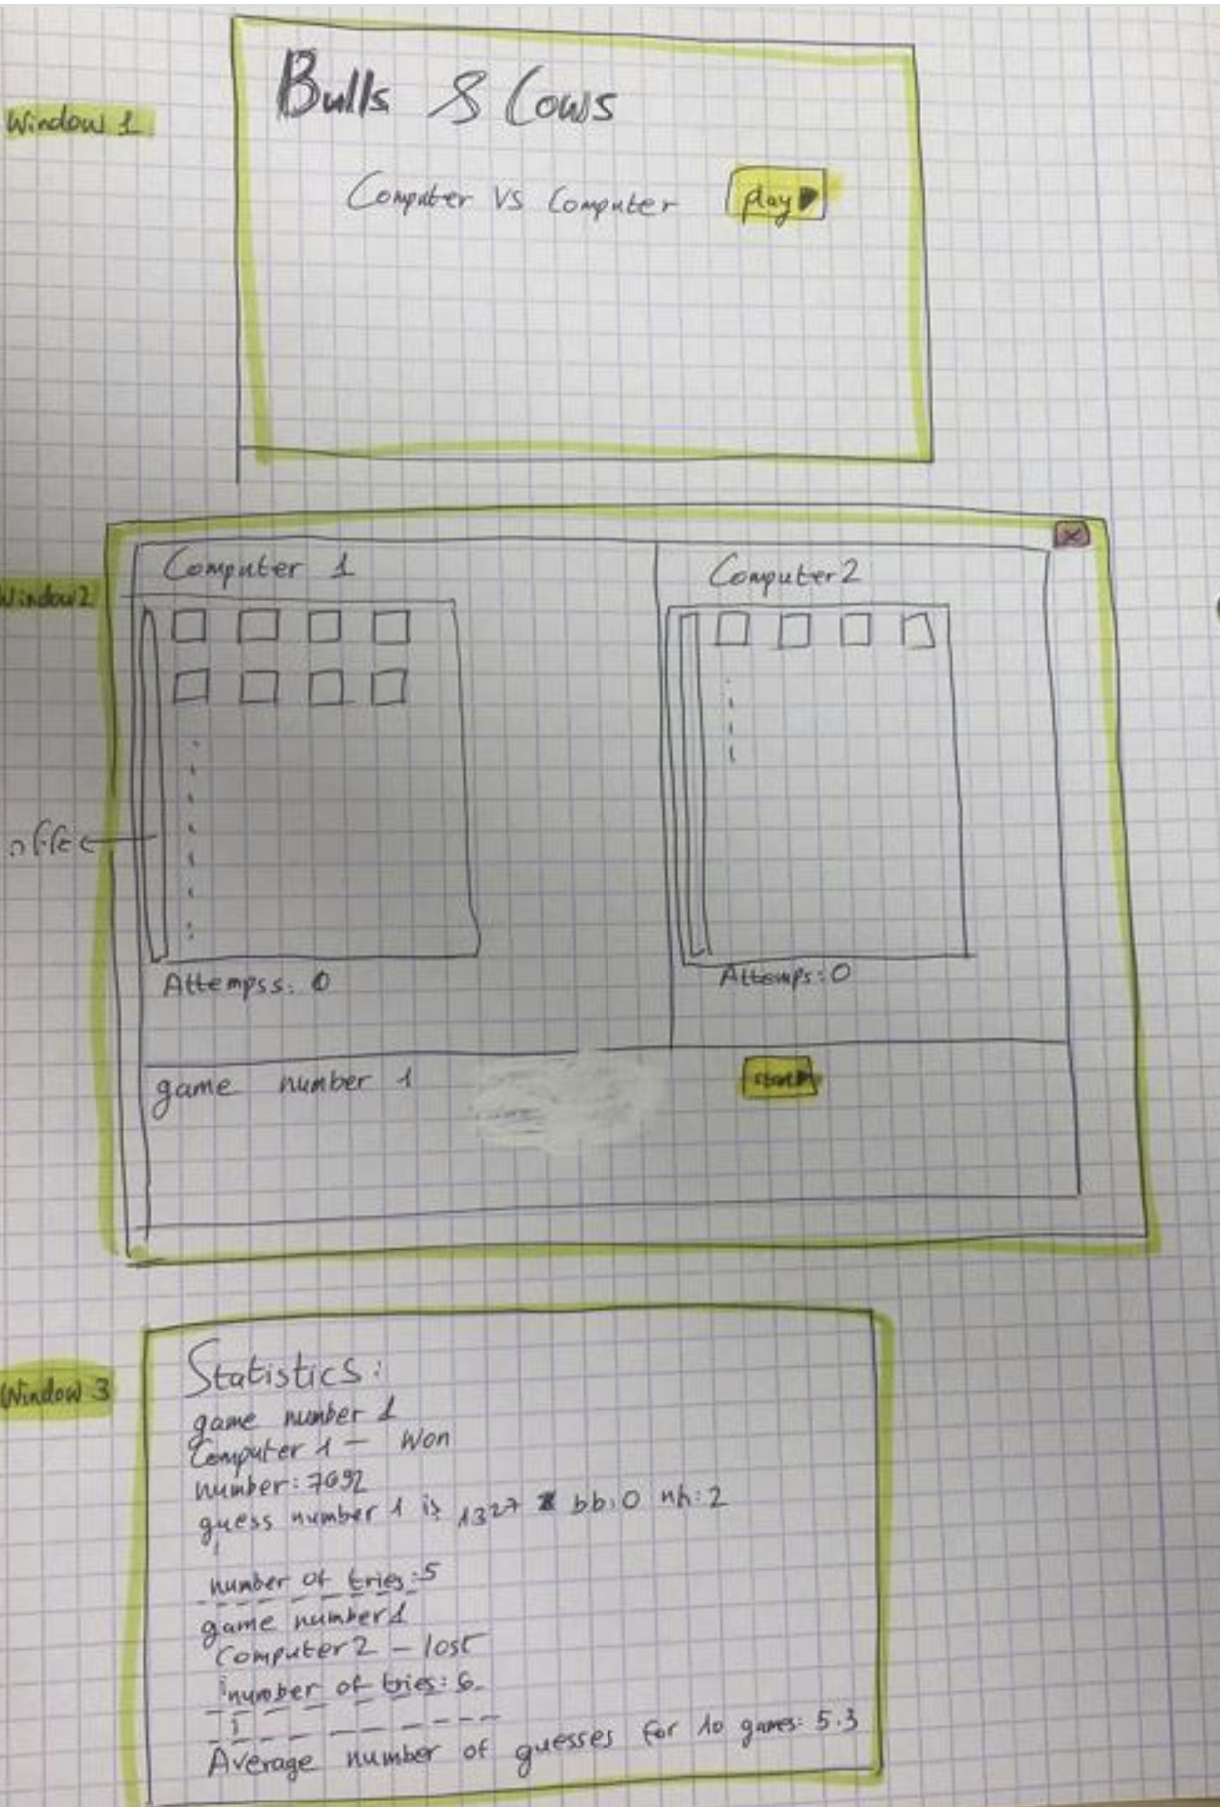 Window 1
Bulls & Cows
Computer VS Computer play
Window 2
Computer 1
Computer 2
Attempss: 0
Attemps: 0
game number 1
start
Window 3
Statistics:
game number 1
Computer 1 - Won
number: 7692
guess number 1 is 1327 bb:0 nh:2
number of tries: 5
game number 1
Computer 2 - lost
number of tries: 6
Average number of guesses for 10 games: 5.3